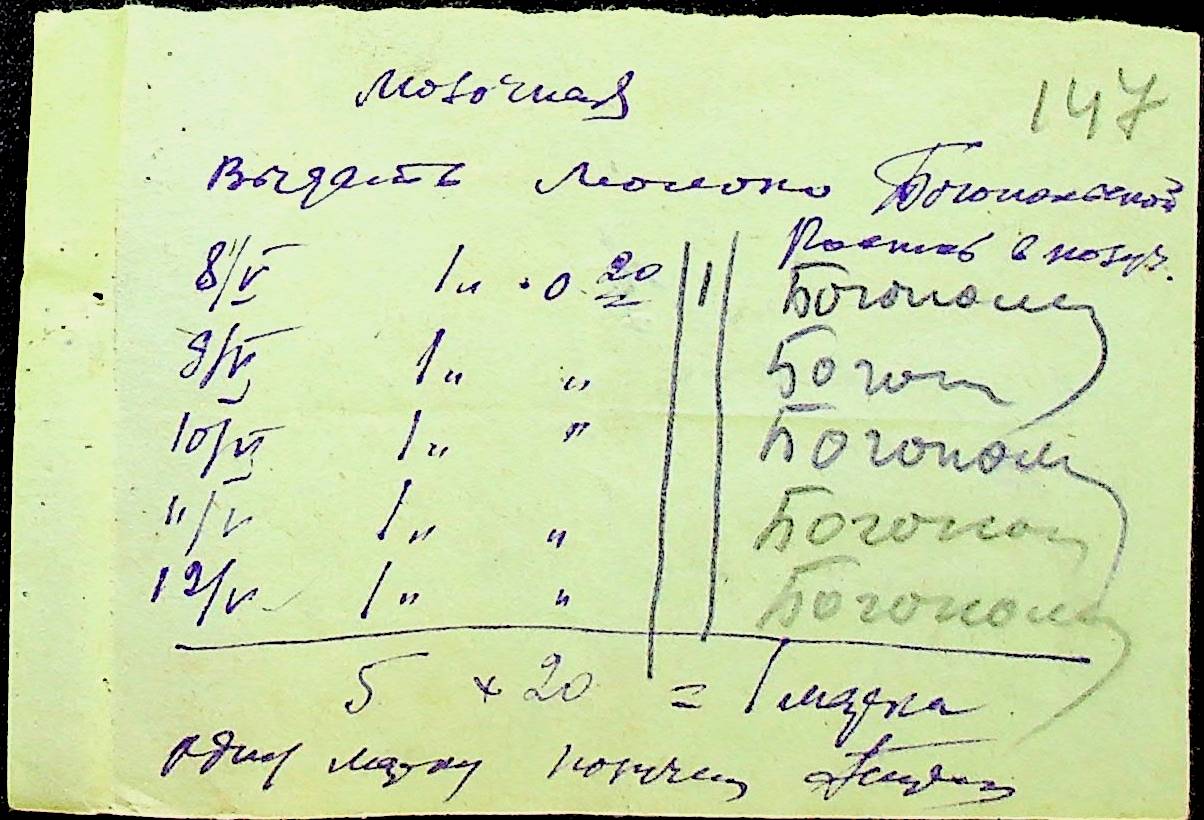 Молочная 147
Выдать молоко Богопольской
Роспись в получ.
8/V 1 л. 0 20 1 Богополь
9/V 1 " " Богоп
10/V 1 " " Богополь
11/V 1 " " Богопол
12/V 1 " " Богополь
5 × 20 = 1 марка
одну марку получил